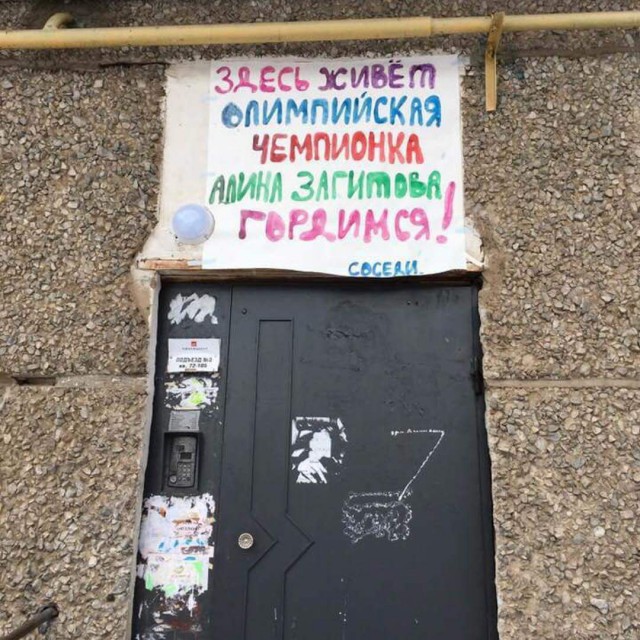 ЗДЕСЬ ЖИВЁТ
ОЛИМПИЙСКАЯ
ЧЕМПИОНКА
АЛИНА ЗАГИТОВА
ГОРДИМСЯ!
СОСЕДИ.
ПОДЪЕЗД №2